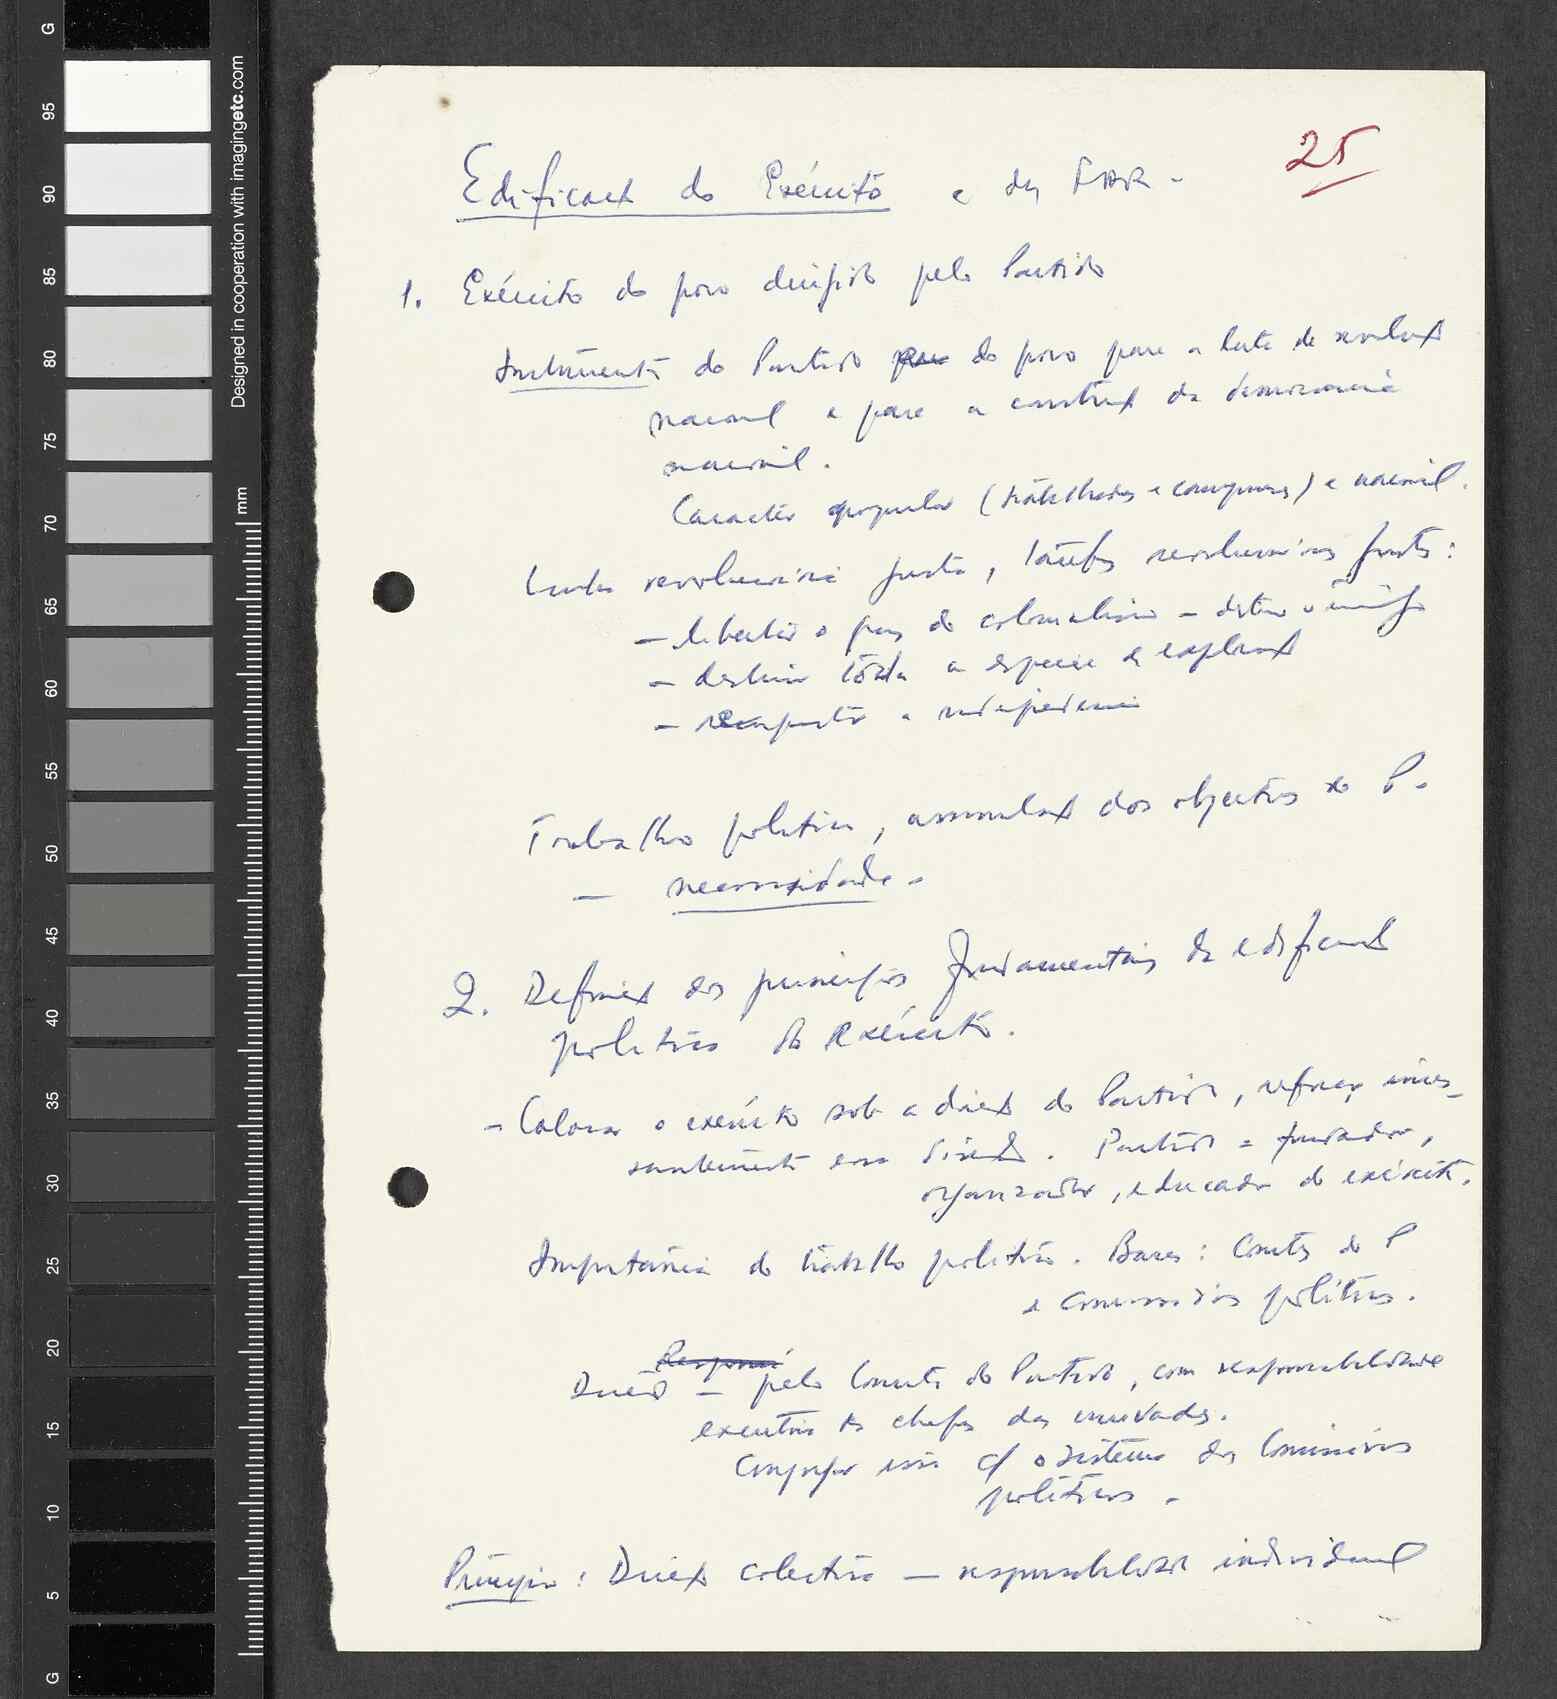 25
Edificação do Exército e das FAR -
1. Exército do povo dirigido pelo Partido
Instrumento do Partido do povo para a luta de
nacional e para a construção da democracia
nacional.
Carácter popular (trabalhadores e camponeses) e nacional.
Luta revolucionária justa, tarefas revolucionárias justas:
- libertar o país do colonialismo - o inimigo
- destruir tôda a espécie de exploração
- a independência
Trabalho político, assimilação dos objectivos do P.
- necessidade.
2. Definição dos princípios fundamentais da edificação
política do exército.
- Colocar o exército sob a direcção do Partido, reforçar inces-
santemente essa direcção. Partido = fundador,
organizador, educador do exército.
Importância do trabalho político. Bases: Comités do P
e comissários políticos.
Direcção - pelo Comité do Partido, com responsabilidade
executiva dos chefes das unidades.
Conjugar isso c/ o sistema dos Comissários
políticos.
Princípio: Direcção colectiva — responsabilidade individual
Designed in cooperation with imagingetc.com
mm
G
95
90
85
80
75
70
65
60
55
50
45
40
35
30
25
20
15
10
5
G